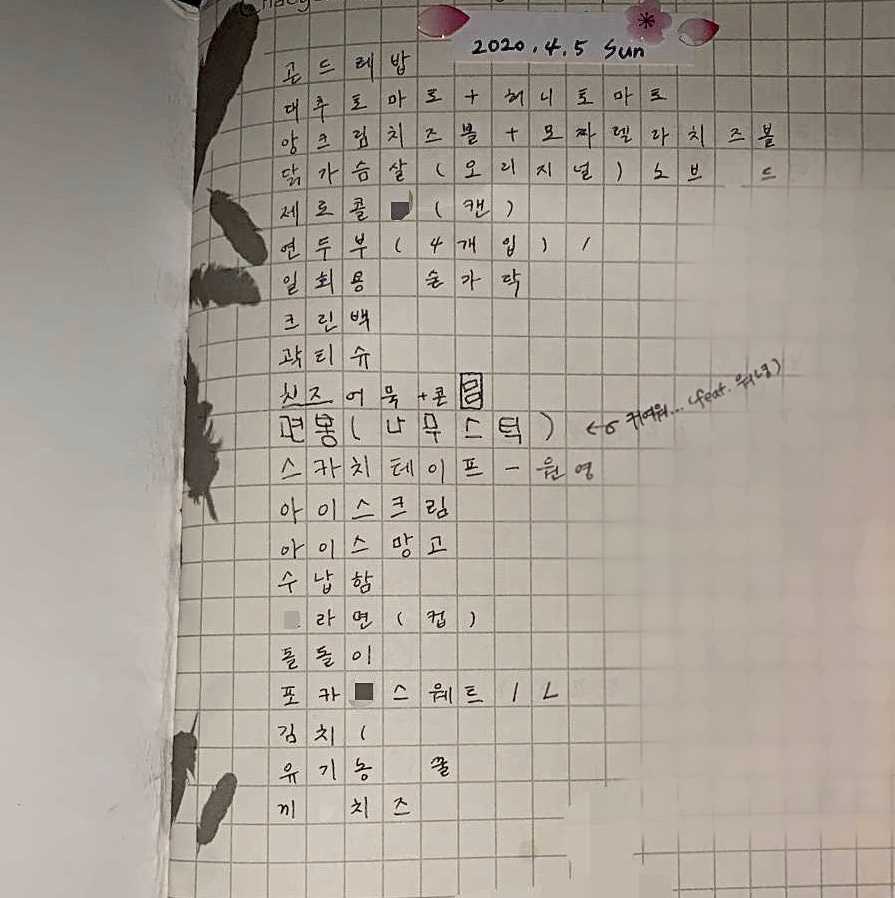 2020.4.5 Sun
곤드레밥
대추토마토+허니토마토
앙크림치즈볼+모짜렐라치즈볼
닭가슴살(오리지널)노브 드
제로콜 (캔)
연두부(4개입)1
일회용 숟가락
크린백
곽티슈
치즈어묵+콘
면봉(나무스틱) ← 귀여워...(feat. 워녕)
스카치테이프-원영
아이스크림
아이스망고
수납함
라면(컵)
돌돌이
포카 스웨트 1L
김치(
유기농 쌀
끼 치즈